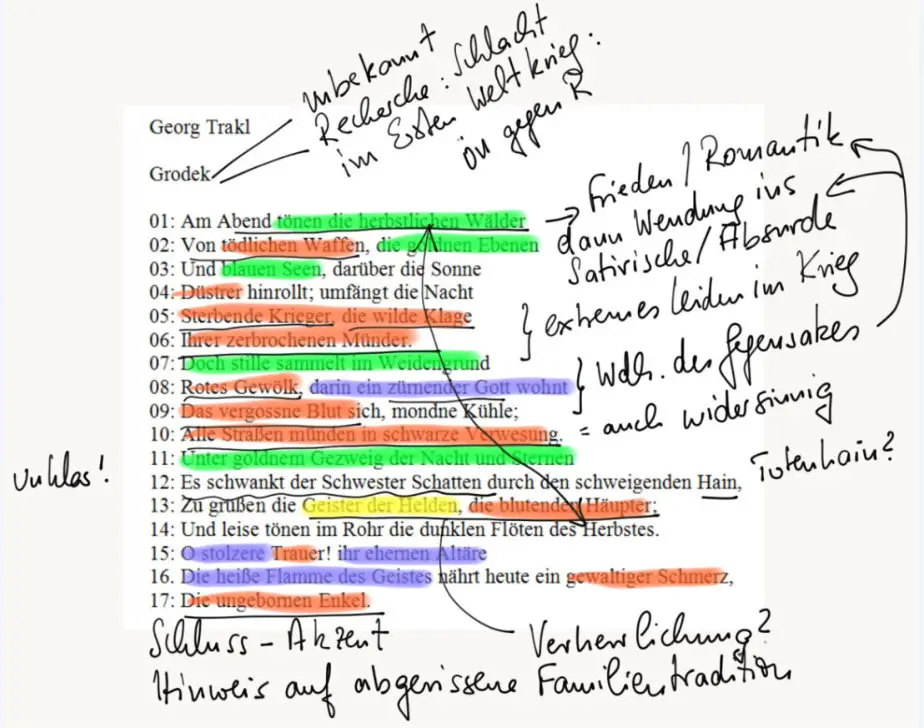 unbekannt
Recherche: Schlacht
im Ersten Weltkrieg:
ÖU gegen R
Georg Trakl
Grodek
01: Am Abend tönen die herbstlichen Wälder
02: Von tödlichen Waffen, die goldnen Ebenen
03: Und blauen Seen, darüber die Sonne
04: Düstrer hinrollt; umfängt die Nacht
05: Sterbende Krieger, die wilde Klage
06: Ihrer zerbrochenen Münder.
07: Doch stille sammelt im Weidengrund
08: Rotes Gewölk, darin ein zürnender Gott wohnt
09: Das vergossne Blut sich, mondne Kühle;
10: Alle Straßen münden in schwarze Verwesung.
11: Unter goldnem Gezweig der Nacht und Sternen
12: Es schwankt der Schwester Schatten durch den schweigenden Hain,
13: Zu grüßen die Geister der Helden, die blutenden Häupter;
14: Und leise tönen im Rohr die dunklen Flöten des Herbstes.
15: O stolzere Trauer! ihr ehernen Altäre
16. Die heiße Flamme des Geistes nährt heute ein gewaltiger Schmerz,
17: Die ungebornen Enkel.
→ Frieden / Romantik
dann Wendung ins
Satirische / Absurde
} extremes Leiden im Krieg
} Wdh. des Gegensatzes
= auch widersinnig
Totenhain?
Unklar!
Verherrlichung?
Schluss-Akzent
Hinweis auf abgerissene Familientradition